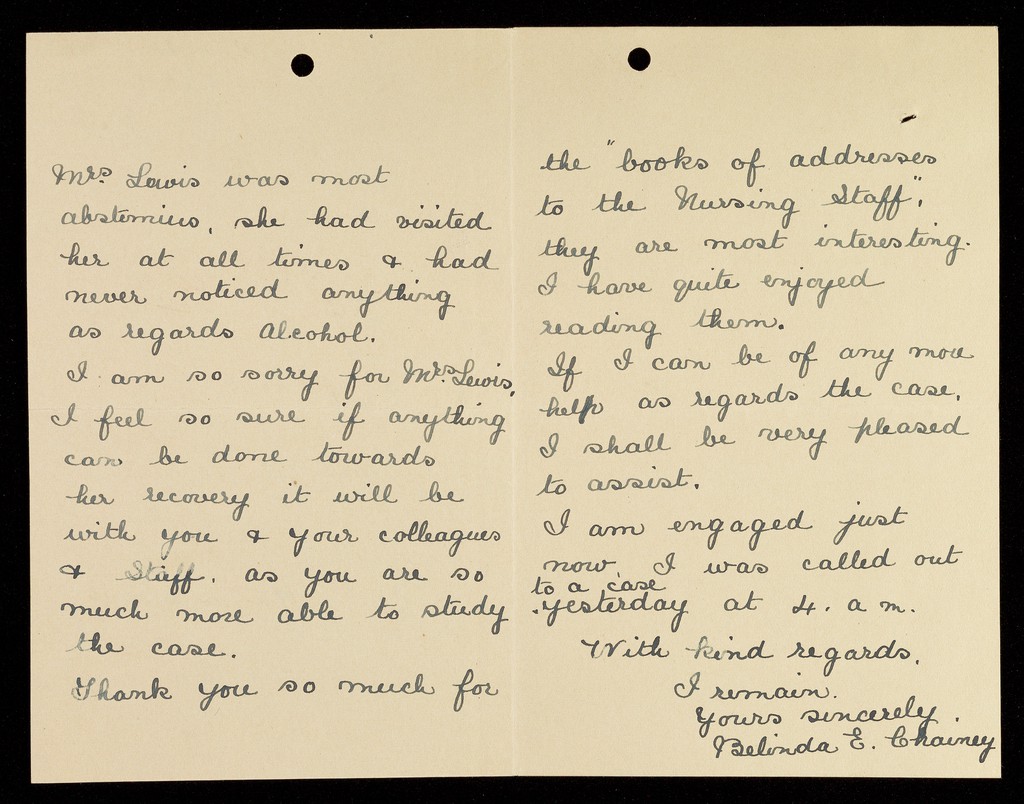 Mrs. Lewis was most
abstemius, she had visited
her at all times & had
never noticed anything
as regards Alcohol.
I am so sorry for Mrs. Lewis,
I feel so sure if anything
can be done towards
her recovery it will be
with you & your colleagues
& Staff. as you are so
much more able to study
the case.
Thank you so much for
the "books of addresses
to the Nursing Staff",
they are most interesting.
I have quite enjoyed
reading them.
If I can be of any more
help as regards the case,
I shall be very pleased
to assist.
I am engaged just
now, I was called out
to a case
yesterday at 4. a m.
With kind regards,
I remain.
Yours sincerely.
Belinda E. Chainey